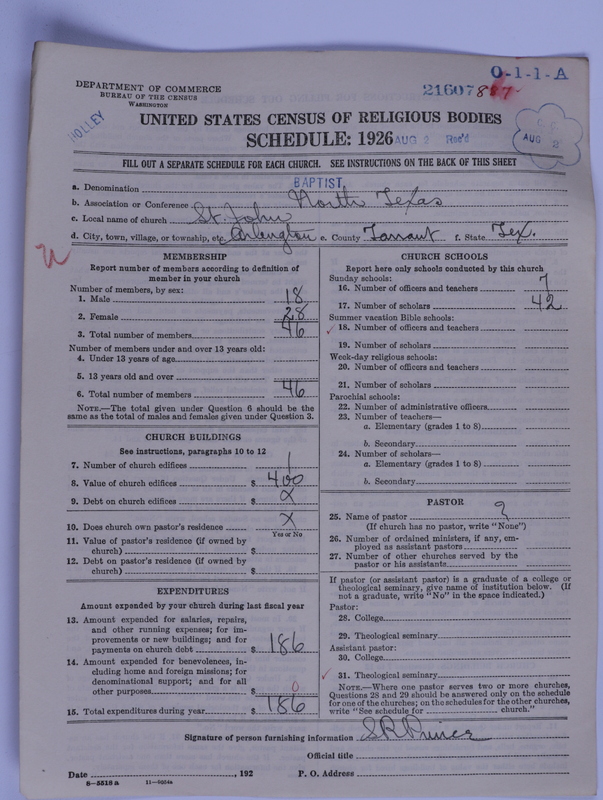 O-1-1-A
DEPARTMENT OF COMMERCE
BUREAU OF THE CENSUS
WASHINGTON
21607
HOLLEY
UNITED STATES CENSUS OF RELIGIOUS BODIES
SCHEDULE: 1926
AUG 2 Rec'd
AUG 2
FILL OUT A SEPARATE SCHEDULE FOR EACH CHURCH. SEE INSTRUCTIONS ON THE BACK OF THIS SHEET
a. Denomination BAPTIST
b. Association or Conference North Texas
c. Local name of church St. John
d. City, town, village, or township, etc. Arlington e. County Tarrant f. State Tex.
MEMBERSHIP
Report number of members according to definition of
member in your church
Number of members, by sex:
1. Male 18
2. Female 28
3. Total number of members 46
Number of members under and over 13 years old:
4. Under 13 years of age
5. 13 years old and over
6. Total number of members 46
NOTE.—The total given under Question 6 should be the
same as the total of males and females given under Question 3.
CHURCH BUILDINGS
See instructions, paragraphs 10 to 12
7. Number of church edifices 1
8. Value of church edifices $ 400
9. Debt on church edifices $ X
10. Does church own pastor's residence X
Yes or No
11. Value of pastor's residence (if owned by
church) $
12. Debt on pastor's residence (if owned by
church) $
EXPENDITURES
Amount expended by your church during last fiscal year
13. Amount expended for salaries, repairs,
and other running expenses; for im-
provements or new buildings; and for
payments on church debt $ 186
14. Amount expended for benevolences, in-
cluding home and foreign missions; for
denominational support; and for all
other purposes $ 0
15. Total expenditures during year $ 186
CHURCH SCHOOLS
Report here only schools conducted by this church
Sunday schools:
16. Number of officers and teachers 7
17. Number of scholars 42
Summer vacation Bible schools:
18. Number of officers and teachers
19. Number of scholars
Week-day religious schools:
20. Number of officers and teachers
21. Number of scholars
Parochial schools:
22. Number of administrative officers
23. Number of teachers—
a. Elementary (grades 1 to 8)
b. Secondary
24. Number of scholars—
a. Elementary (grades 1 to 8)
b. Secondary
PASTOR
25. Name of pastor ?
(If church has no pastor, write "None")
26. Number of ordained ministers, if any, em-
ployed as assistant pastors
27. Number of other churches served by the
pastor or his assistants
If pastor (or assistant pastor) is a graduate of a college or
theological seminary, give name of institution below. (If
not a graduate, write "No" in the space indicated.)
Pastor:
28. College
29. Theological seminary
Assistant pastor:
30. College
31. Theological seminary
NOTE.—Where one pastor serves two or more churches,
Questions 28 and 29 should be answered only on the schedule
for one of the churches; on the schedules for the other churches,
write "See schedule for church."
Signature of person furnishing information S.R. Prince
Official title
Date , 192 P. O. Address
8—5518 a 11—9684a